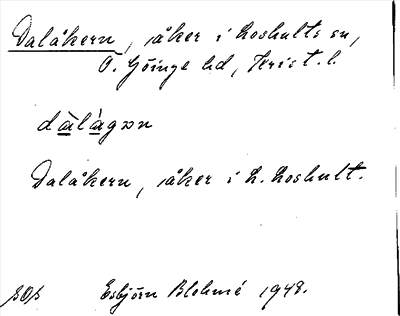 Dalåkern, åker i Loshults sn,
Ö. Göinge hd, Krist. l.
dàlågɔn
Dalåkern, åker i L. Loshult.
Esbjörn Blohmé 1948.